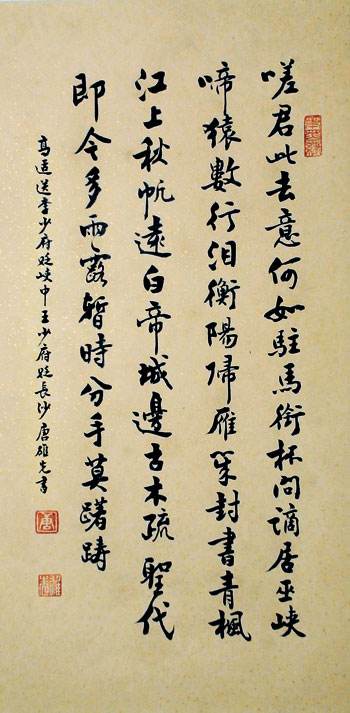 嗟君此去意何如駐馬銜杯問謫居巫峽
啼猿數行泪衡陽歸雁幾封書青楓
江上秋帆遠白帝城邊古木疏聖代
即今多雨露暫時分手莫躇躊
高适送李少府貶峽中王少府貶長沙唐雄先書
唐